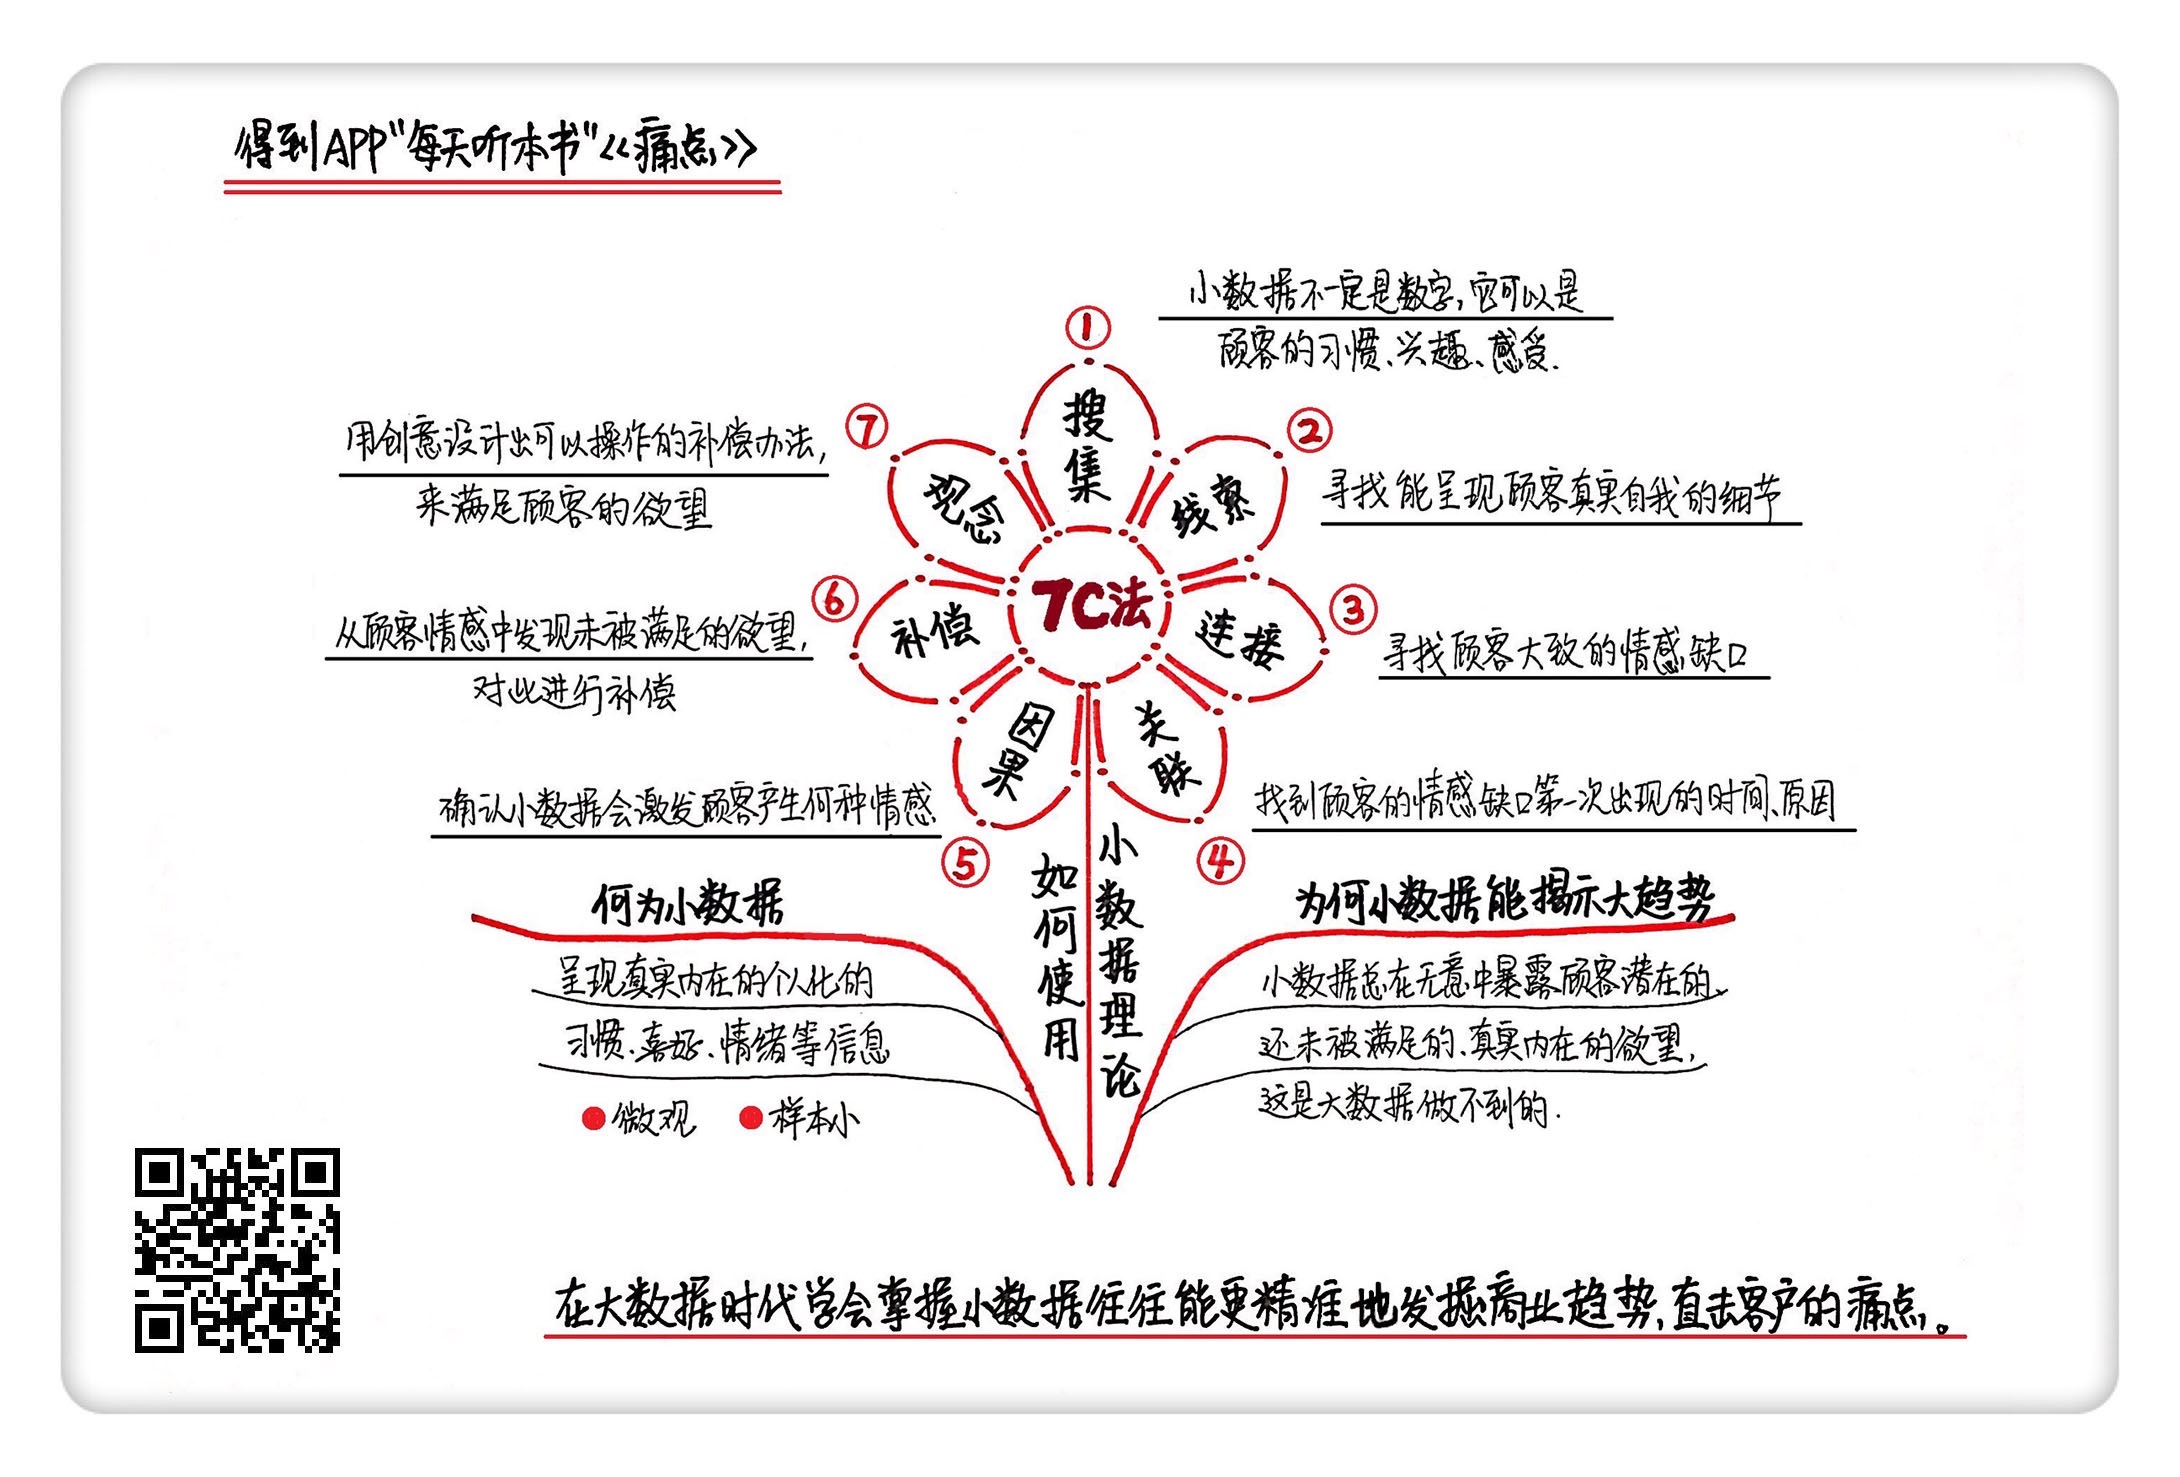 得到APP"每天听本书"《痛点》
①
搜集
小数据不一定是数字,它可以是
顾客的习惯、兴趣、感受.
②
线索
寻找能呈现顾客真实自我的细节
③
连接
寻找顾客大致的情感缺口
④
关联
找到顾客的情感缺口第一次出现的时间、原因
⑤
因果
确认小数据会激发顾客产生何种情感
⑥
补偿
从顾客情感中发现未被满足的欲望,
对此进行补偿
⑦
观念
用创意设计出可以操作的补偿办法,
来满足顾客的欲望
7C法
如何使用
小数据理论
何为小数据
呈现真实内在的个人化的
习惯、喜好、情绪等信息
微观
样本小
为何小数据能揭示大趋势
小数据总在无意中暴露顾客潜在的、
还未被满足的、真实内在的欲望,
这是大数据做不到的.
在大数据时代学会掌握小数据往往能更精准地发掘商业趋势,直击客户的痛点。